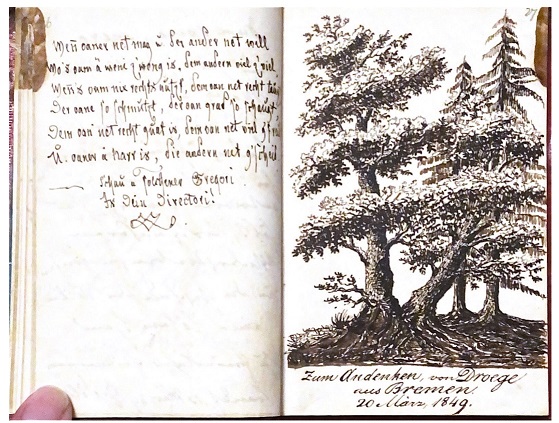 Weñ oaner net mag u. der ander net will
Wo's oam a weni z'wong is, dem andern viel z'viel
Weñ's oam nix rechts nutzt, dem oan net recht
Der oane so schmützt, der oan grad so schaut
Dem oan' net recht guat is, dem oan net viel
U. oaner a Narr is, die andern net g'scheid
Schau a solchener Gregori
Is dein Director!
Zum Andenken, von Droege
aus Bremen.
20 März, 1849.